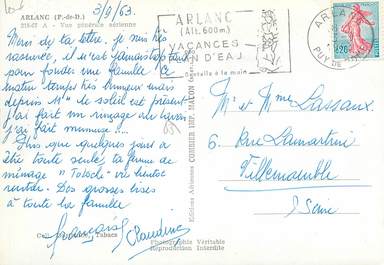 ARLANC (P.-de-D.)
218-67 A - Vue générale aérienne
3/9/63.
Merci de ta lettre. Je suis très
rassurée, il n'est jamais trop tard
pour fonder une famille! Ce
matin temps très brumeux mais
depuis M le soleil est présent
J'ai fait un rinçage du lavon
j'ai fait mumuse !...
Plus que quelques jours à
être toute seule, ta femme de
ménage "Totoche" va bientôt
rentrée. Des grosses bises
à toute la famille
François Claudine
Tabacs
Editions Aériennes COMBIER IMP. MACON
Photographie Véritable
Reproduction Interdite
ARLANC
(Alt. 600m)
VACANCES
N D'EAU
Dentelle à la main
ARLA
PUY DE
0,20
Mr et Mme Lassaux
6 Rue Lamartine
Villemomble
Seine